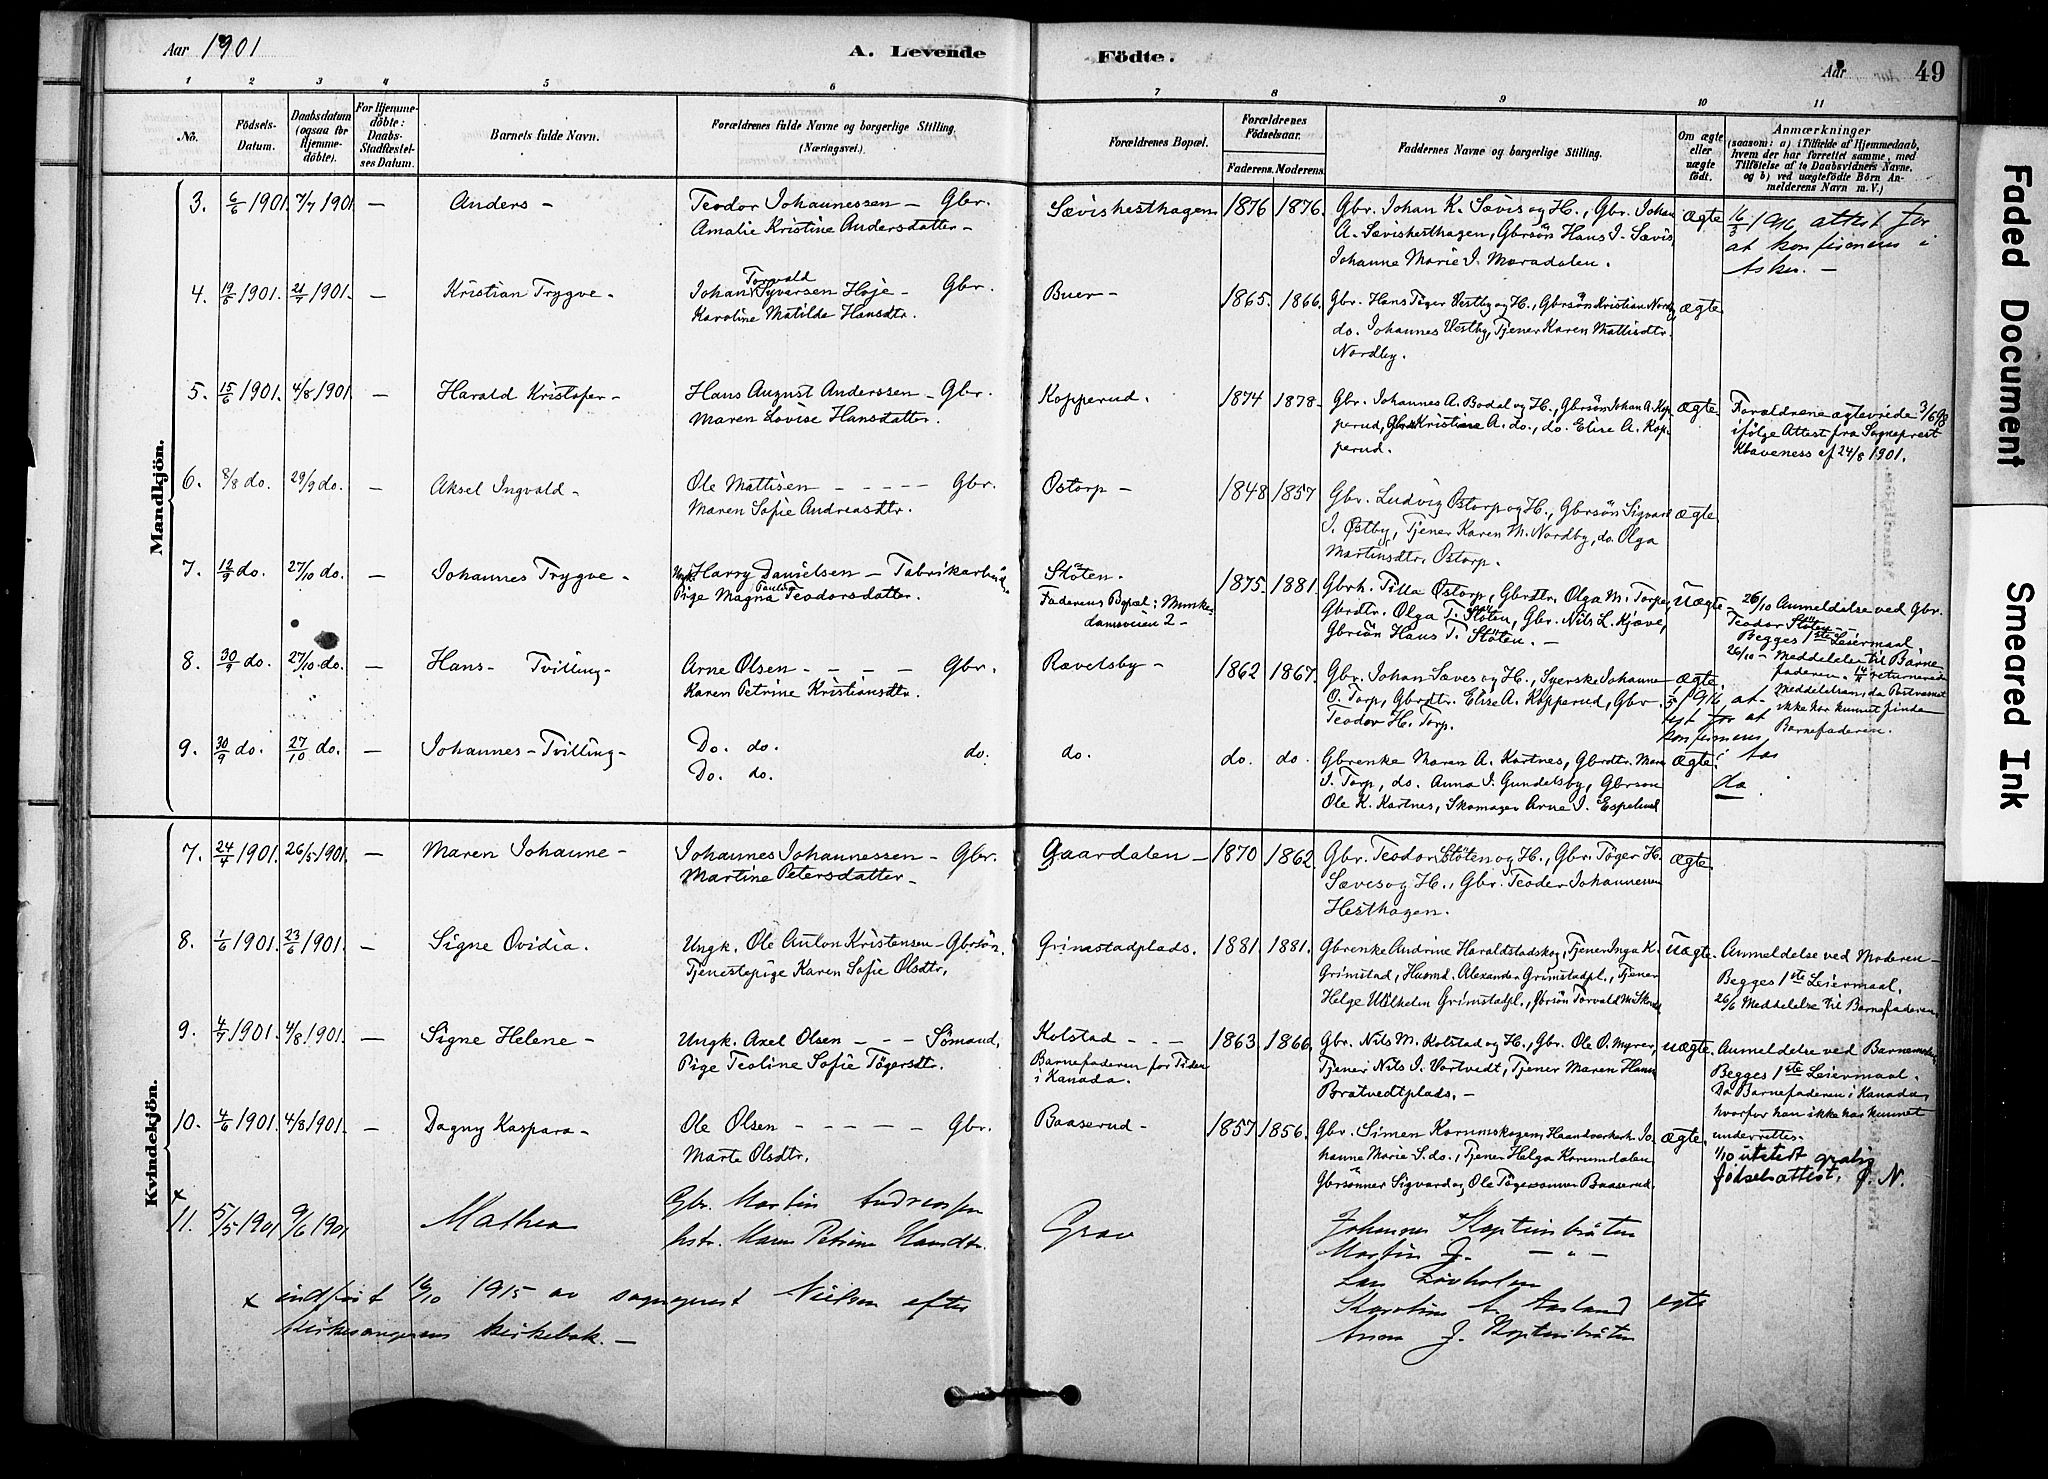 Aar 1901
A. Levende
Födte.
Aar
49
1 2 3 4 5 6 7 8 9 10 11
No.
Födsels-Datum.
Daabsdatum (ogsaa for Hjemme-döbte).
For Hjemme-döbte: Daabs-Stadfæstel-ses Datum.
Barnets fulde Navn.
Forældrenes fulde Navne og borgerlige Stilling. (Næringsvei.)
Forældrenes Bopæl.
Forældrenes Födselsaar.
Faderens. Moderens.
Faddernes Navne og borgerlige Stilling.
Om ægte eller uægte födt.
Anmærkninger
(saasom: a) i Tilfælde af Hjemmedaab,
hvem der har forrettet samme, med
Tilföielse af to Daabsvidners Navne.
og b) ved uægtefödte Börn An-
melderens Navn m. V.)
Mandkjön.
3. 6/6 1901. 7/7 1901 — Anders — Teodor Johannessen — Gbr.
Amalie Kristine Andersdatter —
Sævishesthagen 1876 1876.
Gbr. Johan K. Sævis og H., Gbr. Johan
A. Sævishesthagen, Gbrsön Hans J. Sævis,
Johanne Marie J. Moradalen.
ægte
16/3 1916 attest for
at konfirmeres i
Asker. —
4. 19/6 1901. 21/7 1901. — Kristian Trygve — Johan Torvald Syversen Hoje — Gbr.
Karoline Matilde Hansdtr.
Buer — 1865. 1866.
Gbr. Hans Töger Vestby og H., Gbrsön Kristian Nordby
do. Johannes Vestby, Tjener Karen Mathisdtr.
Nordby.
ægte
5. 15/6 1901. 4/8 1901. — Harald Kristofer — Hans August Anderssen — Gbr.
Maren Lovise Hansdatter.
Kopperud. 1874 1878.
Gbr. Johannes A. Bodal og H., Gbrsön Johan A. Kop-
perud, Kristiane A. do., do. Elise A. Kop-
perud.
ægte.
Forældrene ægteviede 3/6 98
ifölge Attest fra Sogneprest
Klaveness af 24/8 1901.
6. 8/8 do. 29/9 do. — Aksel Ingvald — Ole Mattisen — Gbr.
Maren Sofie Andreasdtr.
Ostorp — 1848 1857
Gbr. Ludvig Ostorp og H., Gbrsön Sigvard
J. Østby, Tjener Karen M. Nordby, do. Olga
Martinsdtr. Ostorp.
ægte
7. 12/9 do. 27/10 do. — Johannes Trygve — Ungk. Harry Danielsen — Fabrikarbeid.
Pige Magna Pauline Teodorsdatter.
Stöten.
Faderens Bopæl: Munke-
damsveien 2 —
1875. 1881.
Gbrk. Tilla Ostorp, Gbrdtr. Olga M. Torp,
Gbrdtr. Olga T. Stöten, Gbr. Nils L. Kjæve,
Gbrsön Hans T. Stöten. —
Uægte
26/10 Anmeldelse ved Gbr.
Teodor Stöten —
Begges 1ste Leiermaal
26/10 — Meddelelse til Barne-
faderen. 14/11 returnerede
Meddelelsen, da Postvæsenet
ikke har kunnet finde
Barnefaderen.
8. 30/9 do. 27/10 do. — Hans — Tvilling — Arne Olsen — Gbr.
Karen Petrine Kristiansdtr.
Ravelsby — 1862 1867.
Gbr. Johan Sæves og H., Syerske Johanne
O. Torp, Gbrdtr. Elise A. Kopperud, Gbr.
Teodor H. Torp.
ægte.
1916 at-
test for at
konfirmeres
i Aas
9. 30/9 do. 27/10 do. — Johannes — Tvilling — Do. do. do.
Do. do.
do. do. do.
Gbrenke Maren A. Kortnes, Gbrdtr. Mara
J. Torp, do. Anna J. Gundelsby, Gbrsön
Ole K. Kortnes, Skomager Arne J. Espelund
ægte.
do
Kvindekjön.
7. 24/4 1901. 26/5 1901. — Maren Johanne — Johannes Johannessen — Gbr.
Martine Petersdatter —
Gaardalen — 1870 1862
Gbr. Teodor Stöten og H., Gbr. Töger H.
Sævis og H., Gbr. Teodor Johannessen
Hesthagen.
ægte.
8. 1/6 1901. 23/6 1901. — Signe Ovidia. Ungk. Ole Anton Kristensen — Gbrsön.
Tjenestepige Karen Sofie Olsdtr.
Grimstadplads. 1881 1881.
Gbrenke Andrine Haraldstadskog, Tjener Inga K.
Grimstad, Husmd. Alexander Grimstadpl., Tjener
Helge Wilhelm Grimstadpl., Gbrsön Torvald M. Skoug
Uægte.
Anmeldelse ved Moderen —
Begges 1ste Leiermaal.
26/6 Meddelelse til Barnefaderen.
9. 4/7 1901. 4/8 1901. — Signe Helene — Ungk. Axel Olsen — Sömand.
Pige Teoline Sofie Tögersdtr.
Kolstad —
Barnefaderen for Tiden
i Kanada.
1863 1866.
Gbr. Nils M. Kolstad og H., Gbr. Ole O. Myrer,
Tjener Nils J. Vortvedt, Tjener Maren Hansn
Bratvedtplads. —
uægte.
Anmeldelse ved Barnemoder.
Begges 1ste Leiermaal.
Da Barnefaderen i Kanada,
hvorfor han ikke har kunnet
underrettes.
10. 4/6 1901 4/8 1901. — Dagny Kaspara — Ole Olsen — Gbr.
Marte Olsdtr.
Baaserud — 1857 1856.
Gbr. Simen Korumskogen, Haandverkerk. Jo-
hanne Marie S. do., Tjener Helga Korumdalen
Gbrsönner Sigvard og Ole Tögersönner Baaserud.
ægte.
1/10 utstedt gratis
födselsattest. J. N.
x
11. 5/5 1901 9/6 1901 Mathea Gbr. Martin Andreassen
hstr. Maren Petrine Hansdtr.
Grav
Johannes Kopterudbråten
Martin J. — " —
Lars Lövholen
Karoline A. Aasland
Anna J. Kopterudbråten
egte
x indført 16/10 1915 av sogneprest Nielsen efter
kirkesangerens kirkebok. —
Faded Document
Smeared Ink